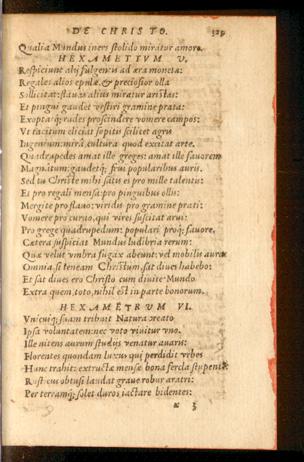 DE CHRISTO. 325
Qualia Mundus iners stolido miratur amore.
HEXAMETRVM V.
Respiciunt alij fulgentis ad æra moneta:
Regales alios epulæ, & preciosior olla
Sollicitat: flauas alius miratur aristas:
Et pingui gaudet vestiri gramine prata:
Exoptatq; rudes proscindere vomere campos:
Vt tacitum eliciat sopitis scilicet agris
Ingenium: mira cultura quod excitat arte.
Quadrupedes amat ille greges: amat ille fauorem
Magnitum: gaudetq; frui popularibus auris.
Sed tu Christe mihi satis es pro mille talentis:
Et pro regali mensa: pro pinguibus ollis:
Mergite pro flauo: viridis pro gramine prati:
Vomere pro curuo, qui vires suscitat arui:
Pro grege quadrupedum: populari proq; fauore.
Cætera suspiciat Mundus ludibria rerum:
Quæ velut vmbra fugax abeunt: vel mobilis aura
Omnia si teneam Christum, sat diues habebo:
Et sat diues ero Christo cum diuite Mundo
Extra quem, toto, nihil est in parte bonorum.
HEXAMETRVM VI.
Vnicuiq; suam tribuit Natura creato
Ipsa voluntatem: nec voto viuitur vno.
Ille nitens aurum studijs venatur auaris:
Florentes quondam luxus qui perdidit vrbes
Hunc trahit: extructæ mensæ bona fercla stupenti
Rusticus obtusi laudat graue robur aratri:
Per terramq; solet duros iactare bidentes:
x 3